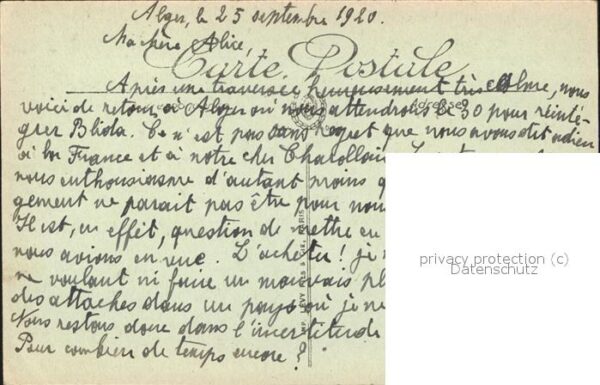 Alger, le 25 septembre 1920.
Ma chère Alice,
Carte Postale
Après une traversée heureusement très calme, nous
voici de retour à Alger où nous attendrons le 30 pour réinté-
grer Blida. Ce n'est pas sans regret que nous avons dit adieu
à la France et à notre cher Charollais.
nous enthousiasme d'autant moins q
gement ne parait pas être pour nou
Il est, en effet, question de mettre en
nous avions en vue. L'acheter! je n
ne voulant ni faire un mauvais pl
des attaches dans un pays où je ne
Nous restons donc dans l'incertitude
Pour combien de temps encore?
Adresse
PARIS
privacy protection (c)
Datenschutz